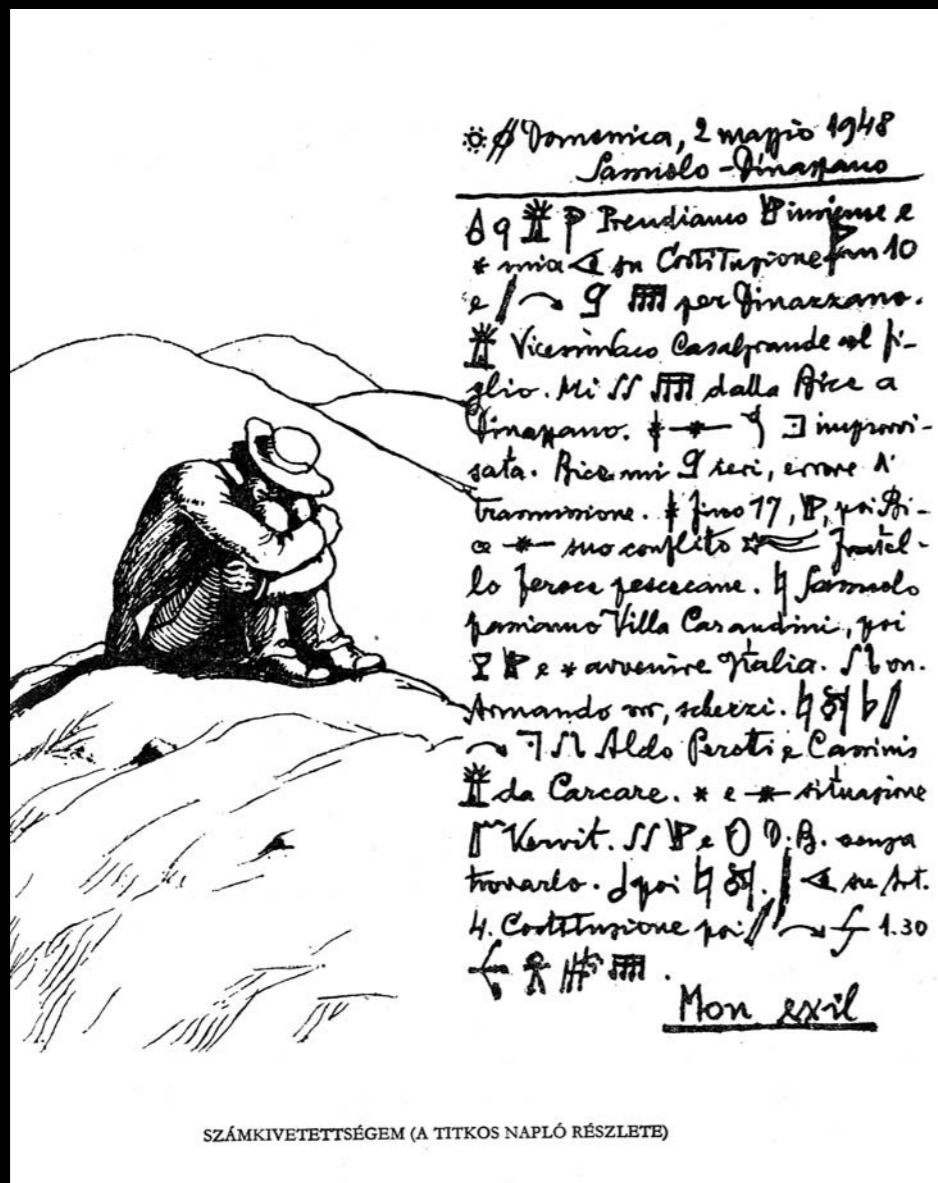 Domenica, 2 maggio 1948
Sassuolo - Dinazzano
Prendiamo insieme e
mia su Costituzione fin 10
e per Dinazzano.
Vicesindaco Casalgrande col fi-
glio. Mi dalla Bice a
Dinazzano. improvvi-
sata. Bice mi ieri, errore d'
trasmissione. fino 17, poi Bi-
ce suo conflito fratel-
lo feroce pescecane. Sassuolo
passiamo Villa Carandini, poi
e avvenire Italia. on.
Armando scherzi.
Aldo Perotti e Cassinis
da Carcare. e situazione
Kervit. e D.B. senza
trovarlo. poi su Art.
4. Costituzione poi 1.30
Mon exil
SZÁMKIVETETTSÉGEM (A TITKOS NAPLÓ RÉSZLETE)